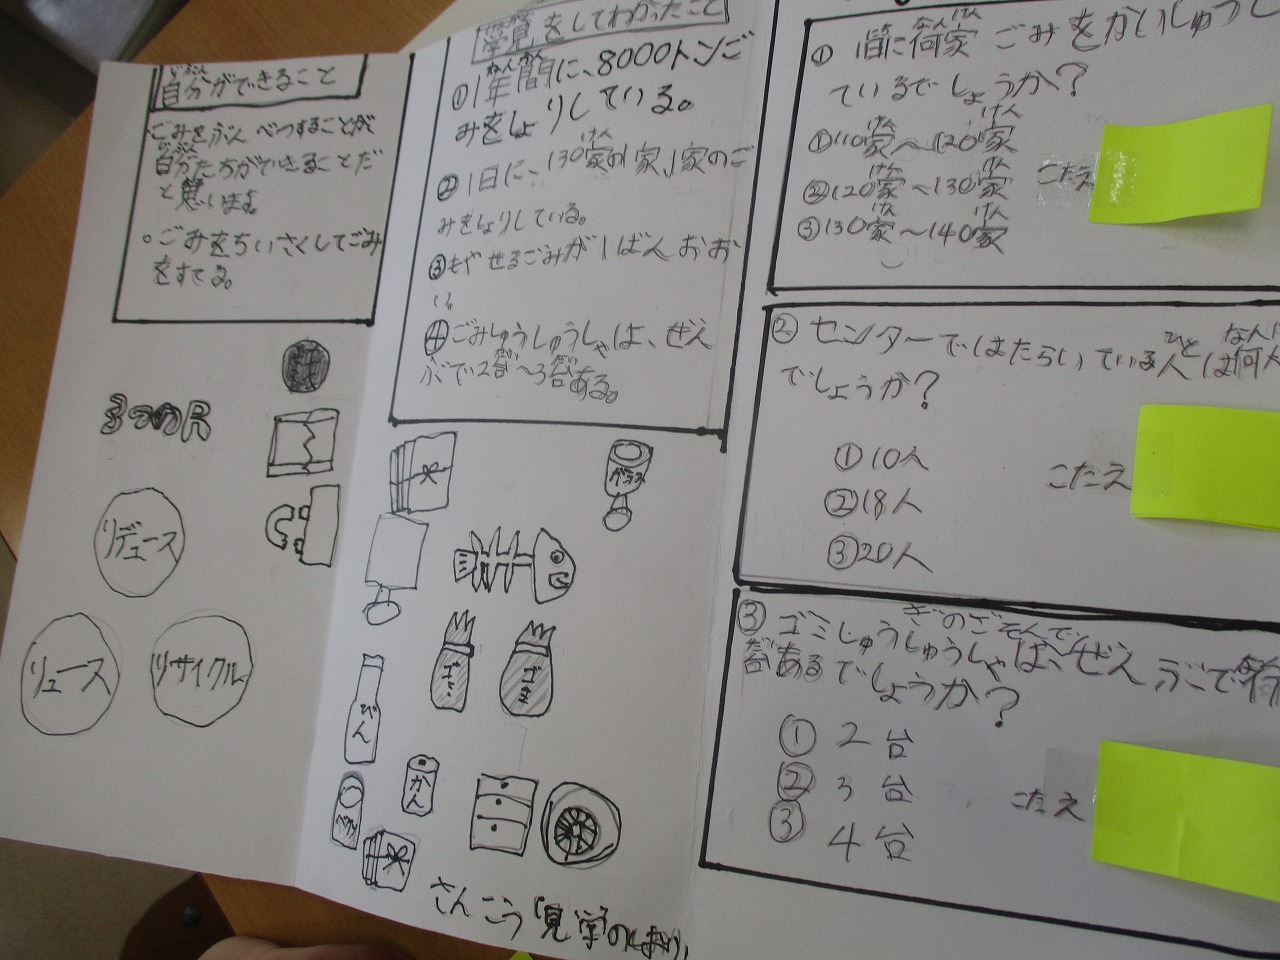 自分ができること
じぶん
ごみをぶんべつすることが
自分たちができることだ
じぶん
と思います。
ごみをちいさくしてごみ
をすてる。
3つのR
リデュース
リユース
リサイクル
学見をしてわかったこと
①1年間に、8000トンご
ねんかん
みをしょりしている。
②1日に、130家の1家、1家のご
けん
みをしょりしている。
③もやせるごみが1ばんおお
い。
④ごみしゅうしゅうしゃは、ぜん
ぶで2台～3台ある。
だい だい
グラス
ゴミ
ゴミ
びん
かん
さんこう「見学のしおり」
①1皆に荷家ごみをかいしゅうし
なんけん
ているでしょうか?
①110家～120家
けん けん
②120家～130家
けん けん
③130家～140家
けん けん
こたえ
②センターではたらいている人は何人
ひと なんに
でしょうか?
①10人
②18人
③20人
こたえ
③ゴミしゅうしゅうしゃは、ぜんぶで
台あるでしょうか?
だい
①2台
②3台
③4台
こたえ